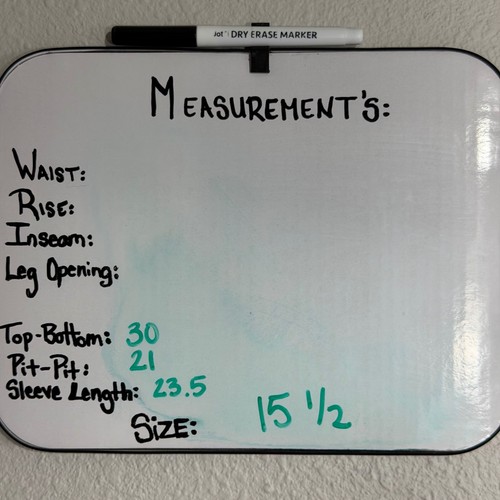 jot DRY ERASE MARKER
MEASUREMENT'S:
WAIST:
RISE:
Inseam:
Leg Opening:
Top-Bottom: 30
Pit-Pit: 21
Sleeve Length: 23.5
SIZE: 15 1/2